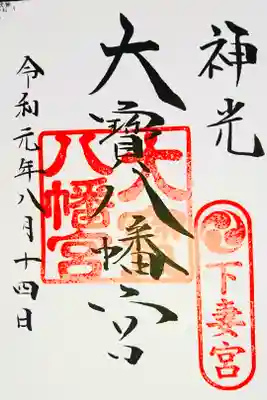 神光
下妻宮
大寳八幡宮
大寳
八幡宮
令和元年八月十四日